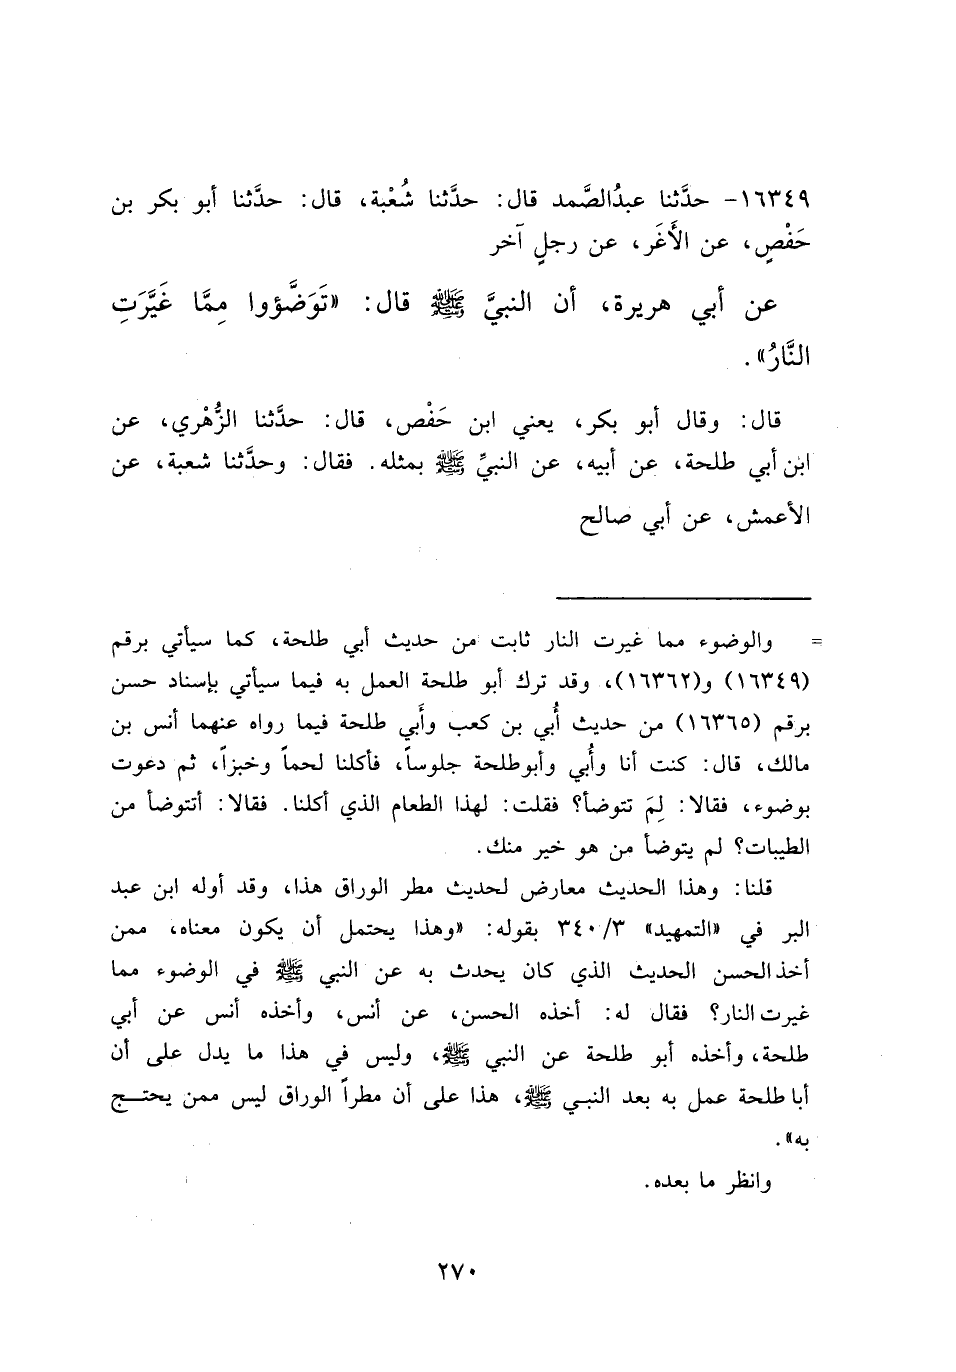 ١٦٣٤٩- حدَّثنا عبدُالصَّمد قال: حدَّثنا شُعْبة، قال: حدَّثنا أبو بكر بن
حَفْصٍ، عن الأَغَر، عن رجلٍ آخر
عن أبي هريرة، أن النبيَّ ﷺ قال: «تَوَضَّؤوا مِمَّا غَيَّرَتِ
النَّارُ».
قال: وقال أبو بكر، يعني ابن حَفْص، قال: حدَّثنا الزُّهْري، عن
ابن أبي طلحة، عن أبيه، عن النبيِّ ﷺ بمثله. فقال: وحدَّثنا شعبة، عن
الأعمش، عن أبي صالح
= والوضوء مما غيرت النار ثابت من حديث أبي طلحة، كما سيأتي برقم
(١٦٣٤٩) و(١٦٣٦٢)، وقد ترك أبو طلحة العمل به فيما سيأتي بإسناد حسن
برقم (١٦٣٦٥) من حديث أُبي بن كعب وأَبي طلحة فيما رواه عنهما أنس بن
مالك، قال: كنت أنا وأُبي وأبوطلحة جلوساً، فأكلنا لحماً وخبزاً، ثم دعوت
بوضوء، فقالا: لِمَ تتوضأ؟ فقلت: لهذا الطعام الذي أكلنا. فقالا: أتتوضأ من
الطيبات؟ لم يتوضأ من هو خير منك.
قلنا: وهذا الحديث معارض لحديث مطر الوراق هذا، وقد أوله ابن عبد
البر في «التمهيد» ٣٤٠/٣ بقوله: «وهذا يحتمل أن يكون معناه، ممن
أخذ الحسن الحديث الذي كان يحدث به عن النبي ﷺ في الوضوء مما
غيرت النار؟ فقال له: أخذه الحسن، عن أنس، وأخذه أنس عن أبي
طلحة، وأخذه أبو طلحة عن النبي ﷺ، وليس في هذا ما يدل على أن
أبا طلحة عمل به بعد النبي ﷺ، هذا على أن مطراً الوراق ليس ممن يحتج
به».
وانظر ما بعده.
٢٧٠